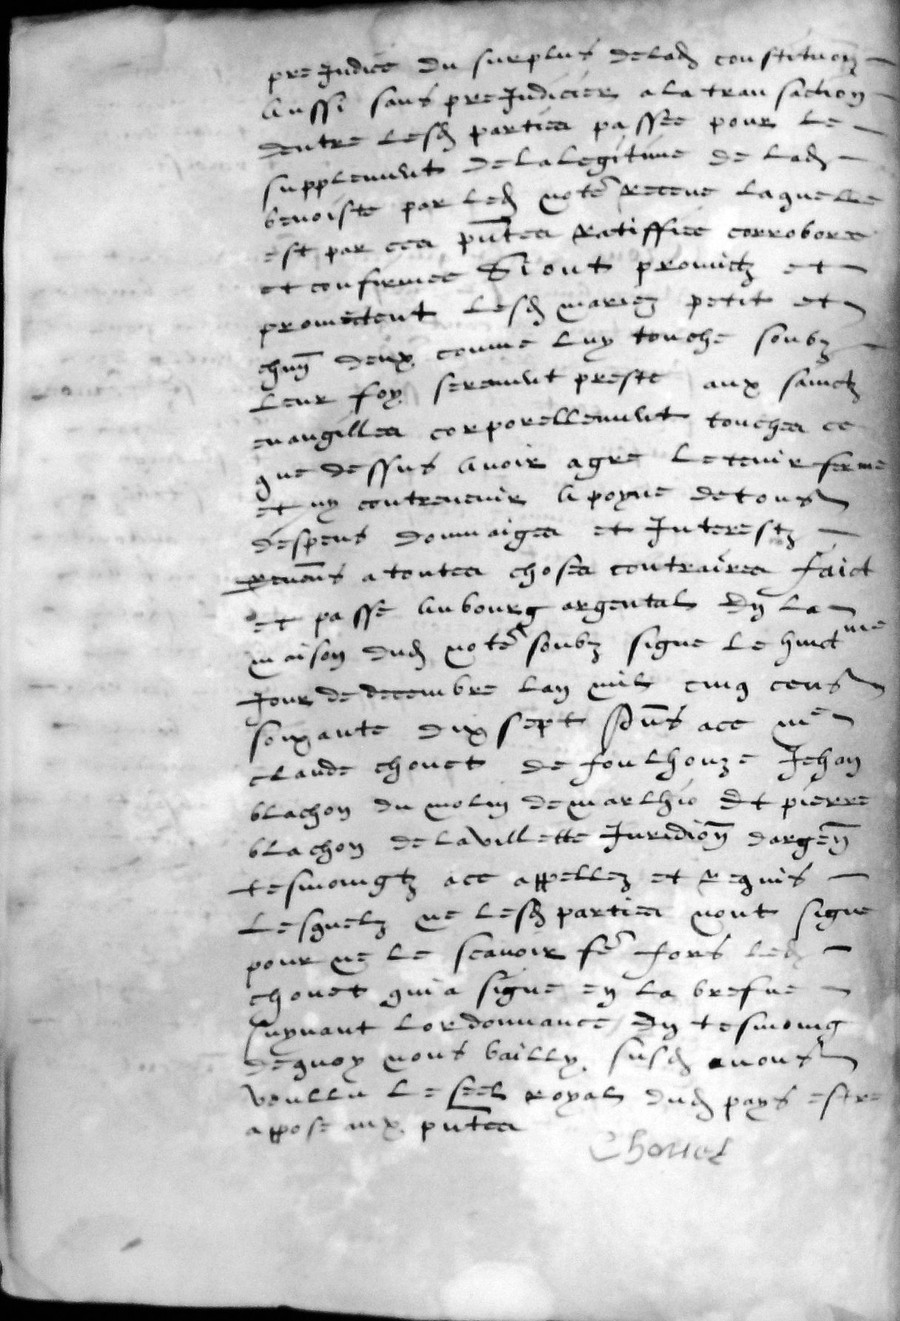 prejudice du surplus delad constitution
Aussi sans prejudicier a la transaction
dentre lesd parties passée pour le
supplement de la legitime de lad
benoiste par led note receue laquelle
est par ces pntes ratiffiee corroboree
et confirmee Si ont promictz et
promectent lesd mariez petit et
chun deux comme luy touche soubz
leur foy serement preste aux sainctz
euangilles corporellement touches ce
que dessus Avoir agre le tenir ferme
et ny contrevenir A poyne de tous
despens dommaiges et Interestz
Renons a toutes choses contraires faict
et passe Au bourg argental En la
maison dud note soubz signe le huictme
Jour de decembre lan mil cinq cens
soixante dix sept pns ace me
claude chouet de foulhouze Jehan
blachon du molin de marlhio Et pierre
blachon de la villette Juridion dargen
tesmoingtz ace appellez et requis
Lesquelz ne lesd parties nont signe
pour ne le scavoir fe fors led
chouet qui a signe en la brefue
suyvant lordonnance En tesmoing
dequoy nous bailly susd avons
voullu le seel royal dud pays estre
appose aux pntes
Chouet